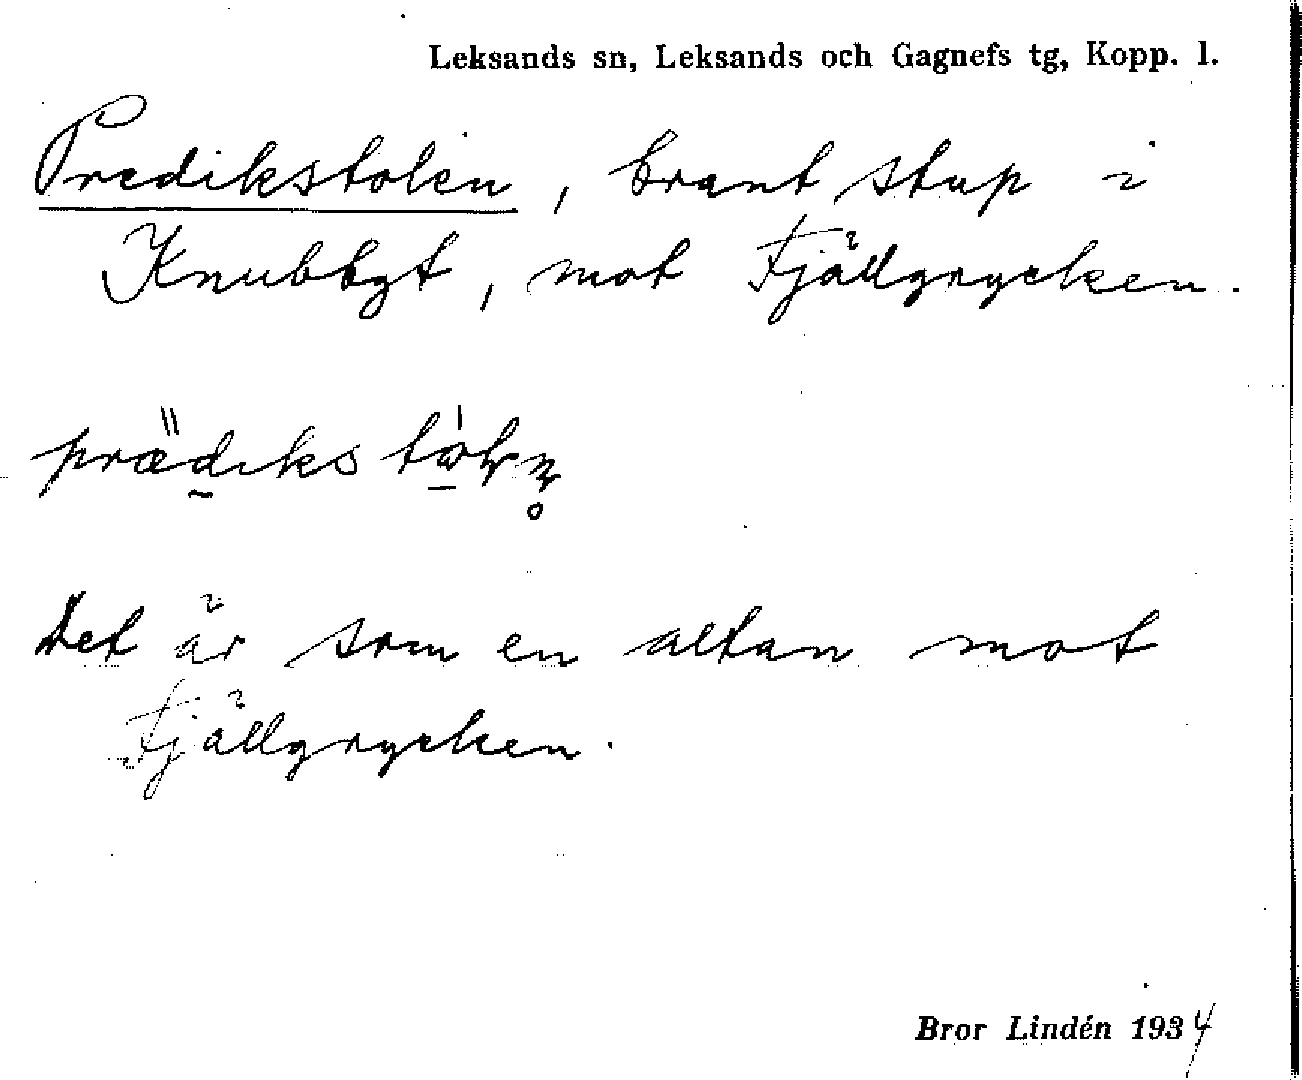 Leksands sn, Leksands och Gagnefs tg, Kopp. l.
Predikstolen, brant stup i
Knubbgt, mot Fjällgrycken.
Det är som en altan mot
Fjällgrycken.
Bror Lindén 1934